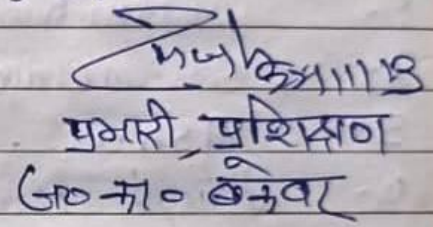 प्रभारी, प्रशिक्षण
ज० का० बकेवर